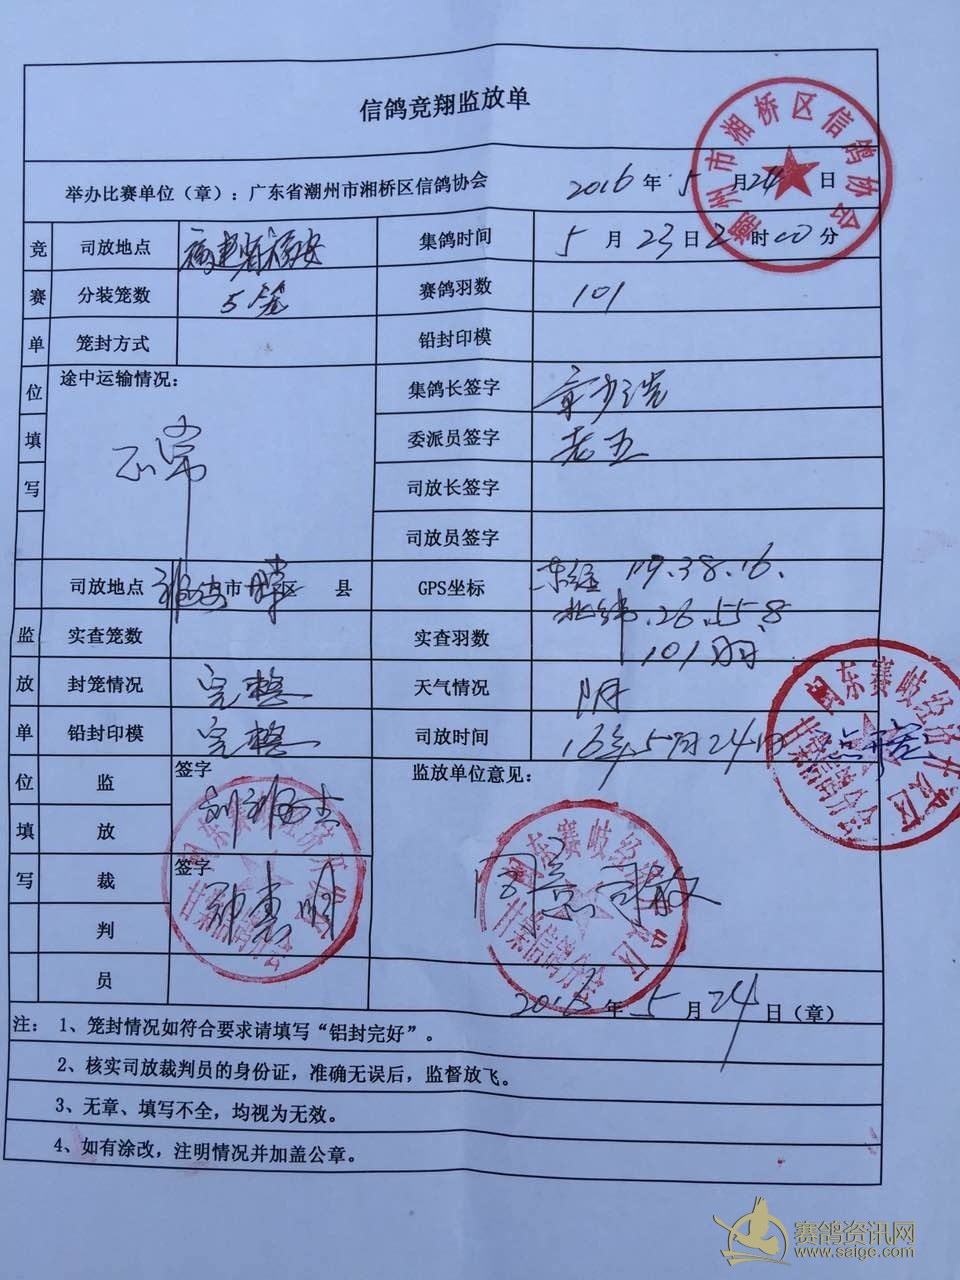 信鸽竞翔监放单
举办比赛单位（章）：广东省潮州市湘桥区信鸽协会 2016年5月24日
潮州市湘桥区信鸽协会
竞赛单位填写
司放地点 福建省福安 集鸽时间 5月23日2 时00分
分装笼数 5笼 赛鸽羽数 101
笼封方式 铅封印模
途中运输情况： 正常
集鸽长签字
委派员签字 老五
司放长签字
司放员签字
监放单位填写
司放地点 福安市 区 县 GPS坐标 东经 119.38.16.
北纬.26.55.8
实查笼数 实查羽数 101羽
封笼情况 完整 天气情况 阴
铅封印模 完整 司放时间 16年5月24日
闽东赛岐经济开发区
甘棠信鸽分会
监放裁判员
签字
签字 郑惠明
监放单位意见：
同意司放
闽东赛岐经济开发区
甘棠信鸽分会
闽东赛岐经济开发区
甘棠信鸽分会
2016年5月24日（章）
注： 1、笼封情况如符合要求请填写“铝封完好”。
2、核实司放裁判员的身份证，准确无误后，监督放飞。
3、无章、填写不全，均视为无效。
4、如有涂改，注明情况并加盖公章。
赛鸽资讯网
www.saigc.com